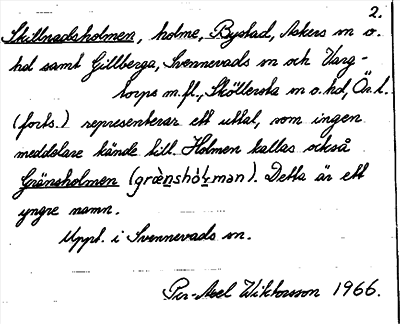 2.
Skillnadsholmen, holme, Bystad, Askers sn o.
hd samt Gillberga, Svennevads sn och Varg-
torps m.fl., Sköllersta sn o. hd, Ör. l.
(forts.) representerar ett uttal, som ingen
meddelare kände till. Holmen kallas också
Gränsholmen (græ̀nshòḷman). Detta är ett
yngre namn.
Uppt. i Svennevads sn.
Per-Axel Wiktorsson 1966.